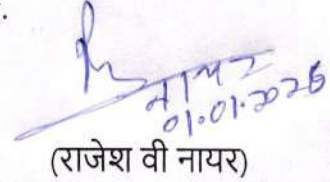 नायर
01.01.2026
(राजेश वी नायर)